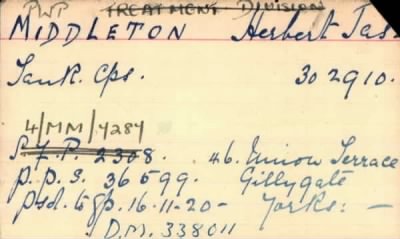 PWP TREATMENT DIVISION
MIDDLETON Herbert Jas.
Tank. Cps. 302910.
4/MM/4284
S.F.P. 2308. 46. Union Terrace
P.P.S. 36599. Gillygate
psd. 16-11-20- Yorks: -
D.M. 338011